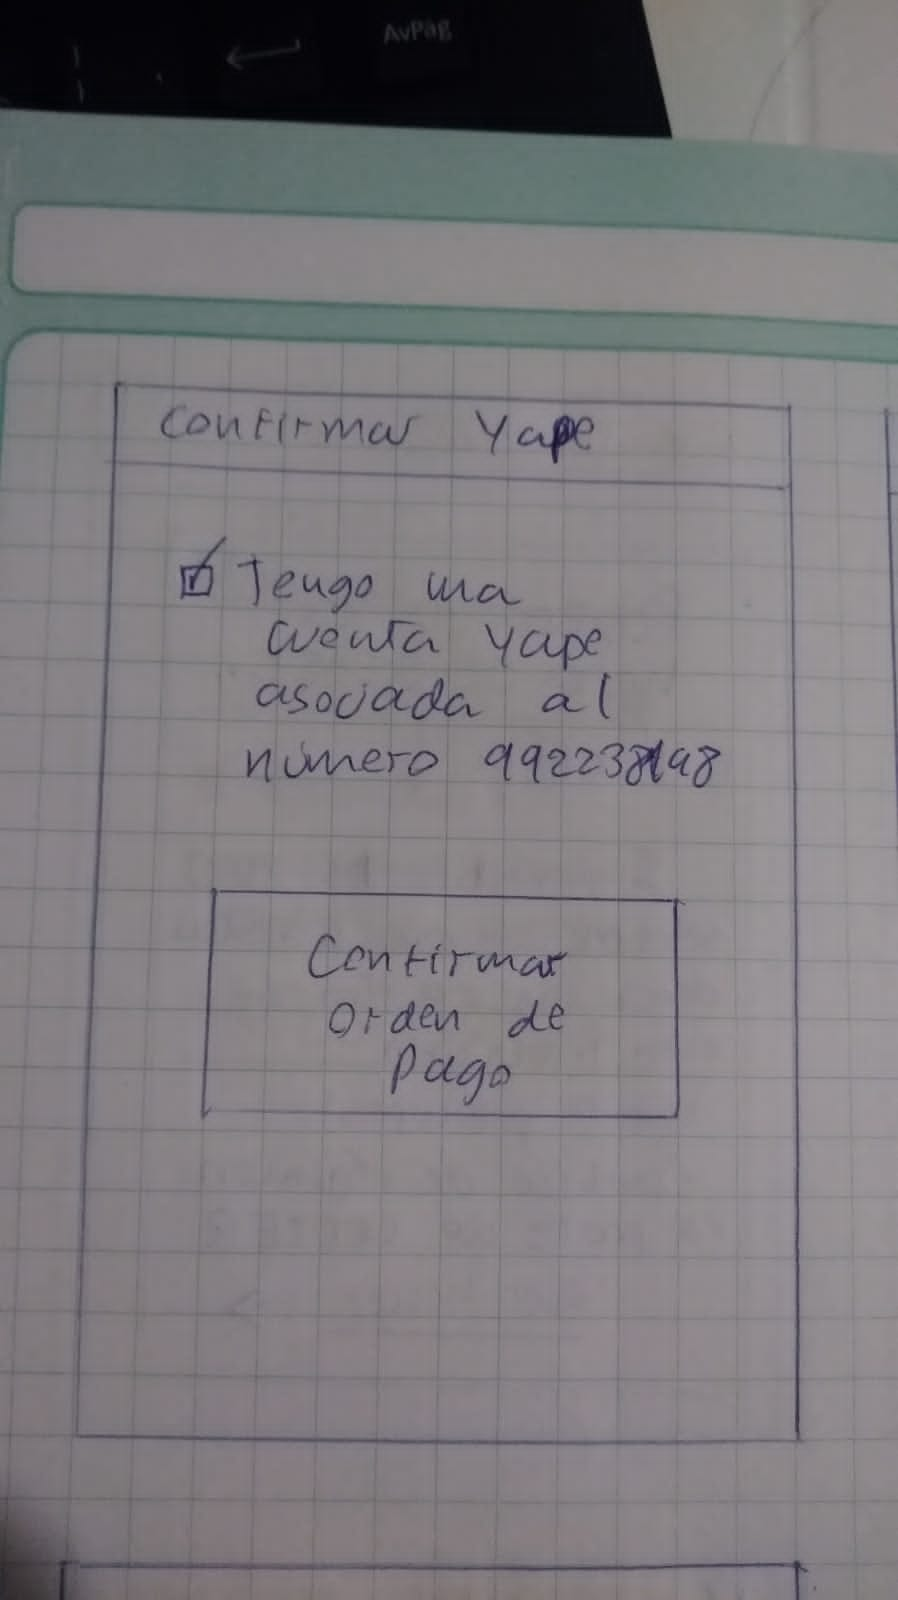 AvPág
Confirmar Yape
Tengo una
cuenta yape
asociada al
número
Confirmar
Orden de
Pago